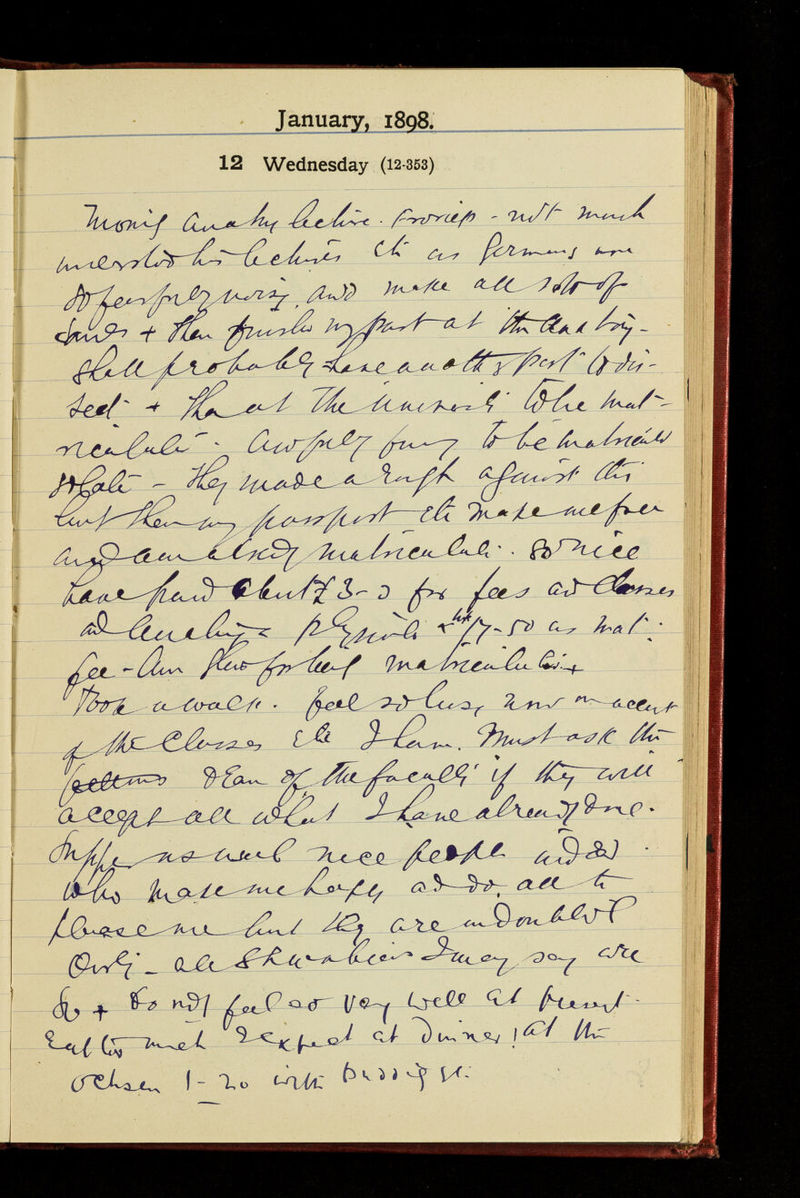 January, 1898.
12 Wednesday (12-353)
Morning Anatomy lecture. Froriep - not much
understood his lectures etc as Germans are
so fearfully noisy and make all sorts of
+ then finished my part at the Anatomy -
Shall probably have another part to dis-
sect + then at the University to be mat-
riculated. Awfully funny to be matriculated
so late - they made a against this
but then my passport etc make me free
and am already matriculated. So nice
have paid about £ 3- for fees and classes
17-50 as mat:
fee - Am matriculation +
Took a walk. feel so busy now on account
of the Classes etc I have. Must ask the
Dean of the faculty if they will
accept all what I have already done.
Supper as usual nice people indeed.
who make me happy and do all to
please me but they are undoubted
I may say are
so + Do not feel so very well at present.
Eat too much I expect at Dinner! at the
Ochsen 1-20 with pudding